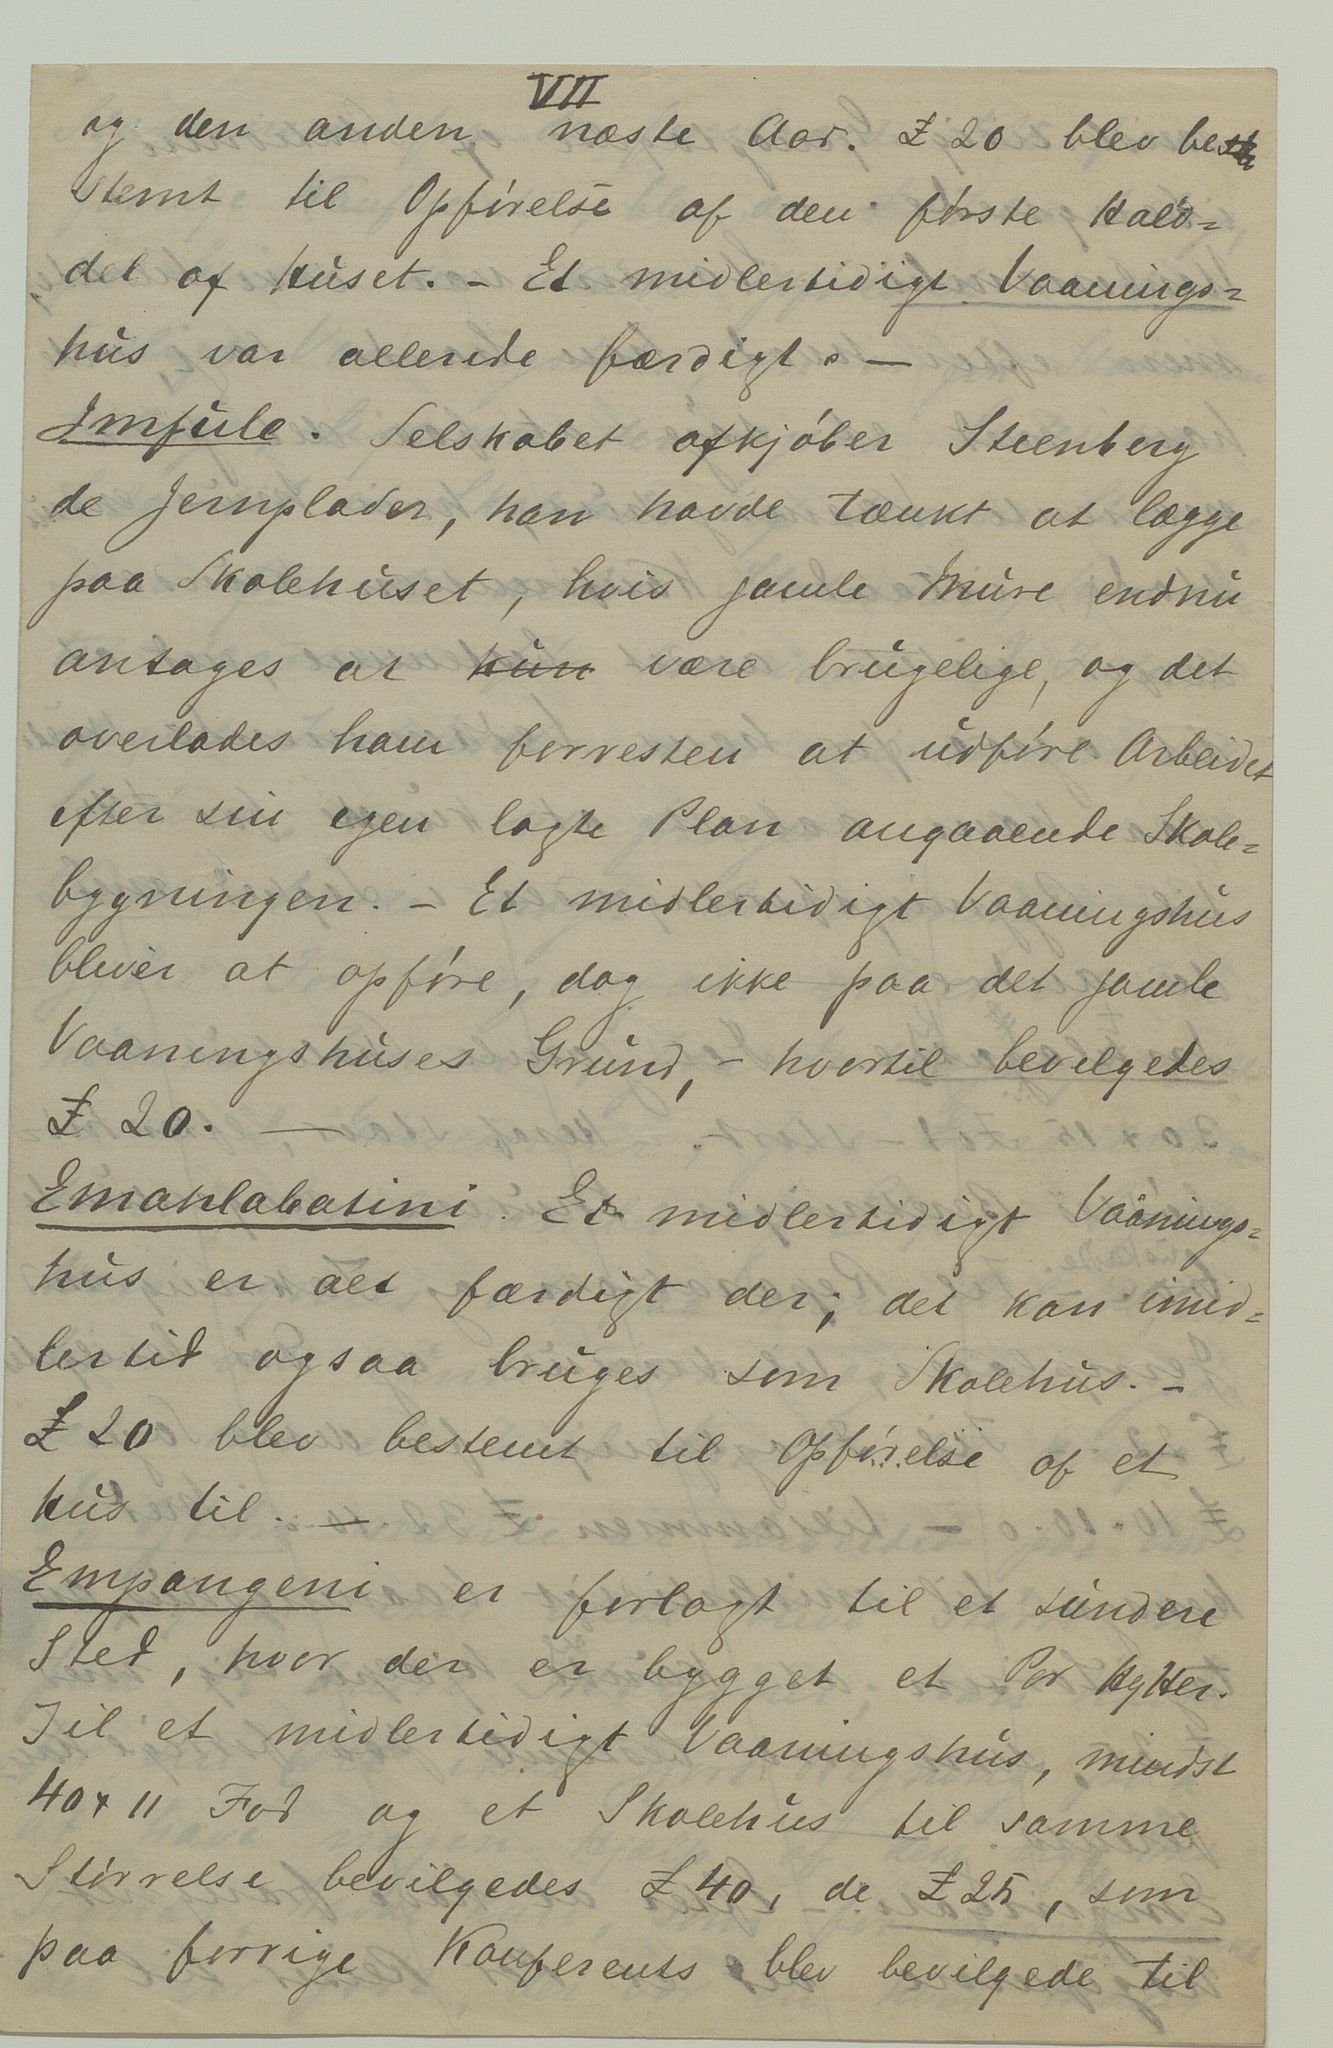 VII
og den anden næste Aar. £ 20 blev be
stemt til Opførelse af den første Halv=
del af Huset. - Et midlertidigt Vaanings=
hus var allerede færdigt. —
Imfule. Selskabet afkjøber Steenberg
de Jernplader, han havde tænkt at lægge
paa Skolehuset, hvis gamle Mure endnu
antages at kun være brugelige, og det
overlades ham forresten at udføre Arbeidet
efter sin egen lagte Plan angaaende Skole=
bygningen. - Et midlertidigt Vaaningshus
bliver at opføre, dog ikke paa det gamle
Vaaningshuses Grund, - hvortil bevilgedes
£ 20. —
Emahlabatini. Et midlertidigt Vaanings=
hus er alt færdigt der; det kan imid=
lertid ogsaa bruges som Skolehus. -
£ 20 blev bestemt til Opførelse af et
Hus til. —
Empangeni er forlagt til et sundere
Sted, hvor der er bygget et Par Hytter.
Til et midlertidigt Vaaningshus, mindst
40 x 11 Fod og et Skolehus til samme
Størrelse bevilgedes £ 40, de £ 25, som
paa forrige Konferents blev bevilgede til